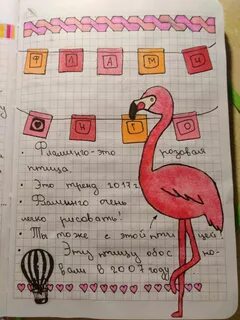 ФЛАМИ
НГО
• Фламинго-это розовая
птица.
• Это тренд 2017 г.
• Фламинго очень
легко рисовать!
• Ты тоже с этой птицей!
• Эту птицу обосно-
вали в 2007 году